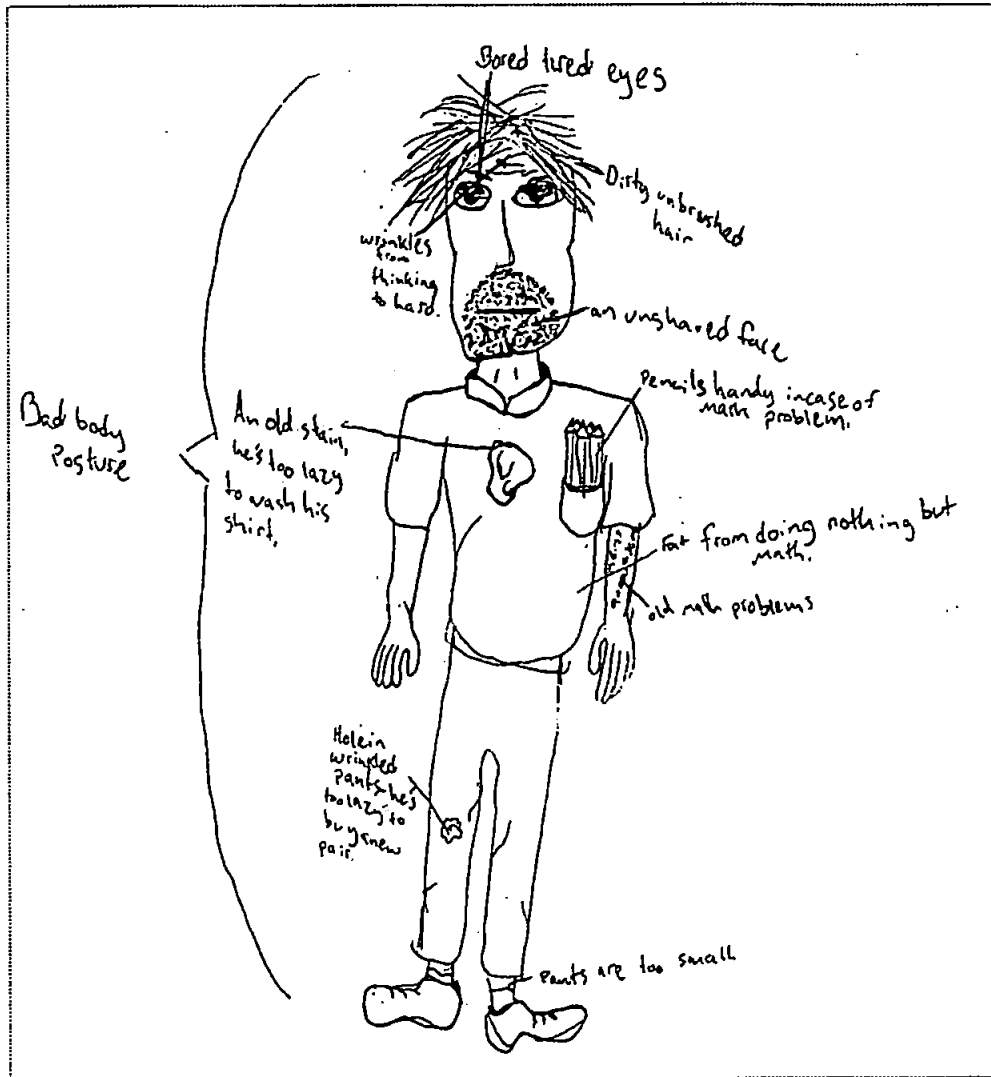 Bored tired eyes
Dirty unbrushed
hair
wrinkles
from
thinking
to hard.
an unshaved face
Pencils handy incase of
Math problem.
Bad body
Posture
An old stain,
he's too lazy
to wash his
shirt.
Fat from doing nothing but
Math.
old math problems
Hole in
wrinkled
pants he's
too lazy to
buy a new
pair.
pants are too small